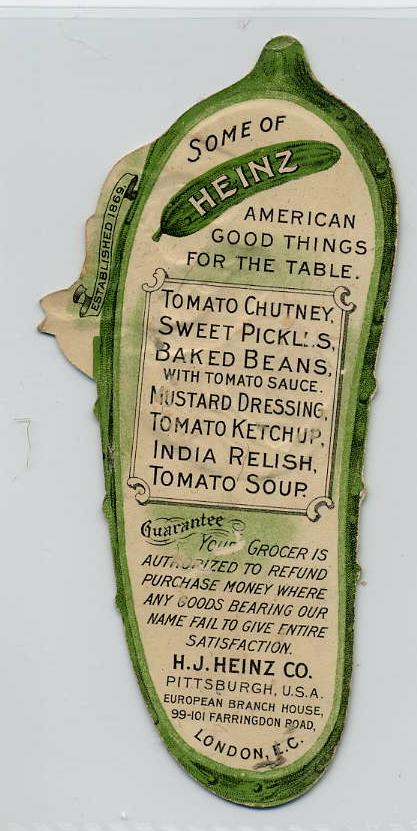 SOME OF
HEINZ
AMERICAN
GOOD THINGS
FOR THE TABLE.
ESTABLISHED 1869.
TOMATO CHUTNEY,
SWEET PICKLES,
BAKED BEANS,
WITH TOMATO SAUCE.
MUSTARD DRESSING,
TOMATO KETCHUP,
INDIA RELISH,
TOMATO SOUP.
Guarantee
YOUR GROCER IS
AUTHORIZED TO REFUND
PURCHASE MONEY WHERE
ANY GOODS BEARING OUR
NAME FAIL TO GIVE ENTIRE
SATISFACTION.
H.J. HEINZ CO.
PITTSBURGH, U.S.A.
EUROPEAN BRANCH HOUSE,
99-101 FARRINGDON ROAD,
LONDON, E.C.